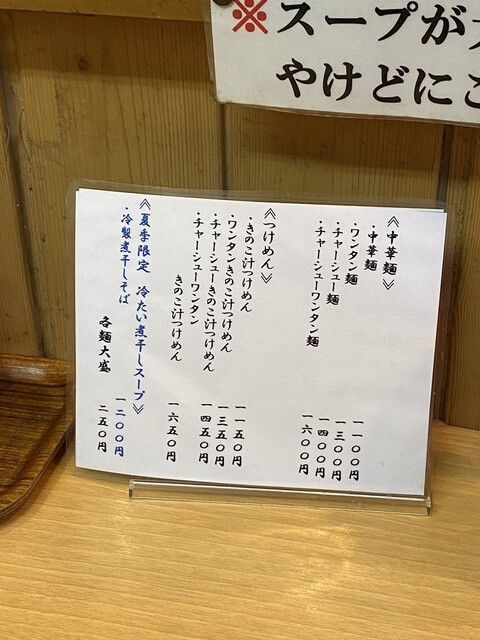 ※スープが
やけどに
≪中華麺≫
・中華麺 一一〇〇円
・ワンタン麺 一三〇〇円
・チャーシュー麺 一四〇〇円
・チャーシューワンタン麺 一六〇〇円
≪つけめん≫
・きのこ汁つけめん 一一五〇円
・ワンタンきのこ汁つけめん 一三五〇円
・チャーシューきのこ汁つけめん 一四五〇円
・チャーシューワンタン
きのこ汁つけめん 一六五〇円
≪夏季限定 冷たい煮干しスープ≫
・冷製煮干しそば 一二〇〇円
各麺大盛 二五〇円